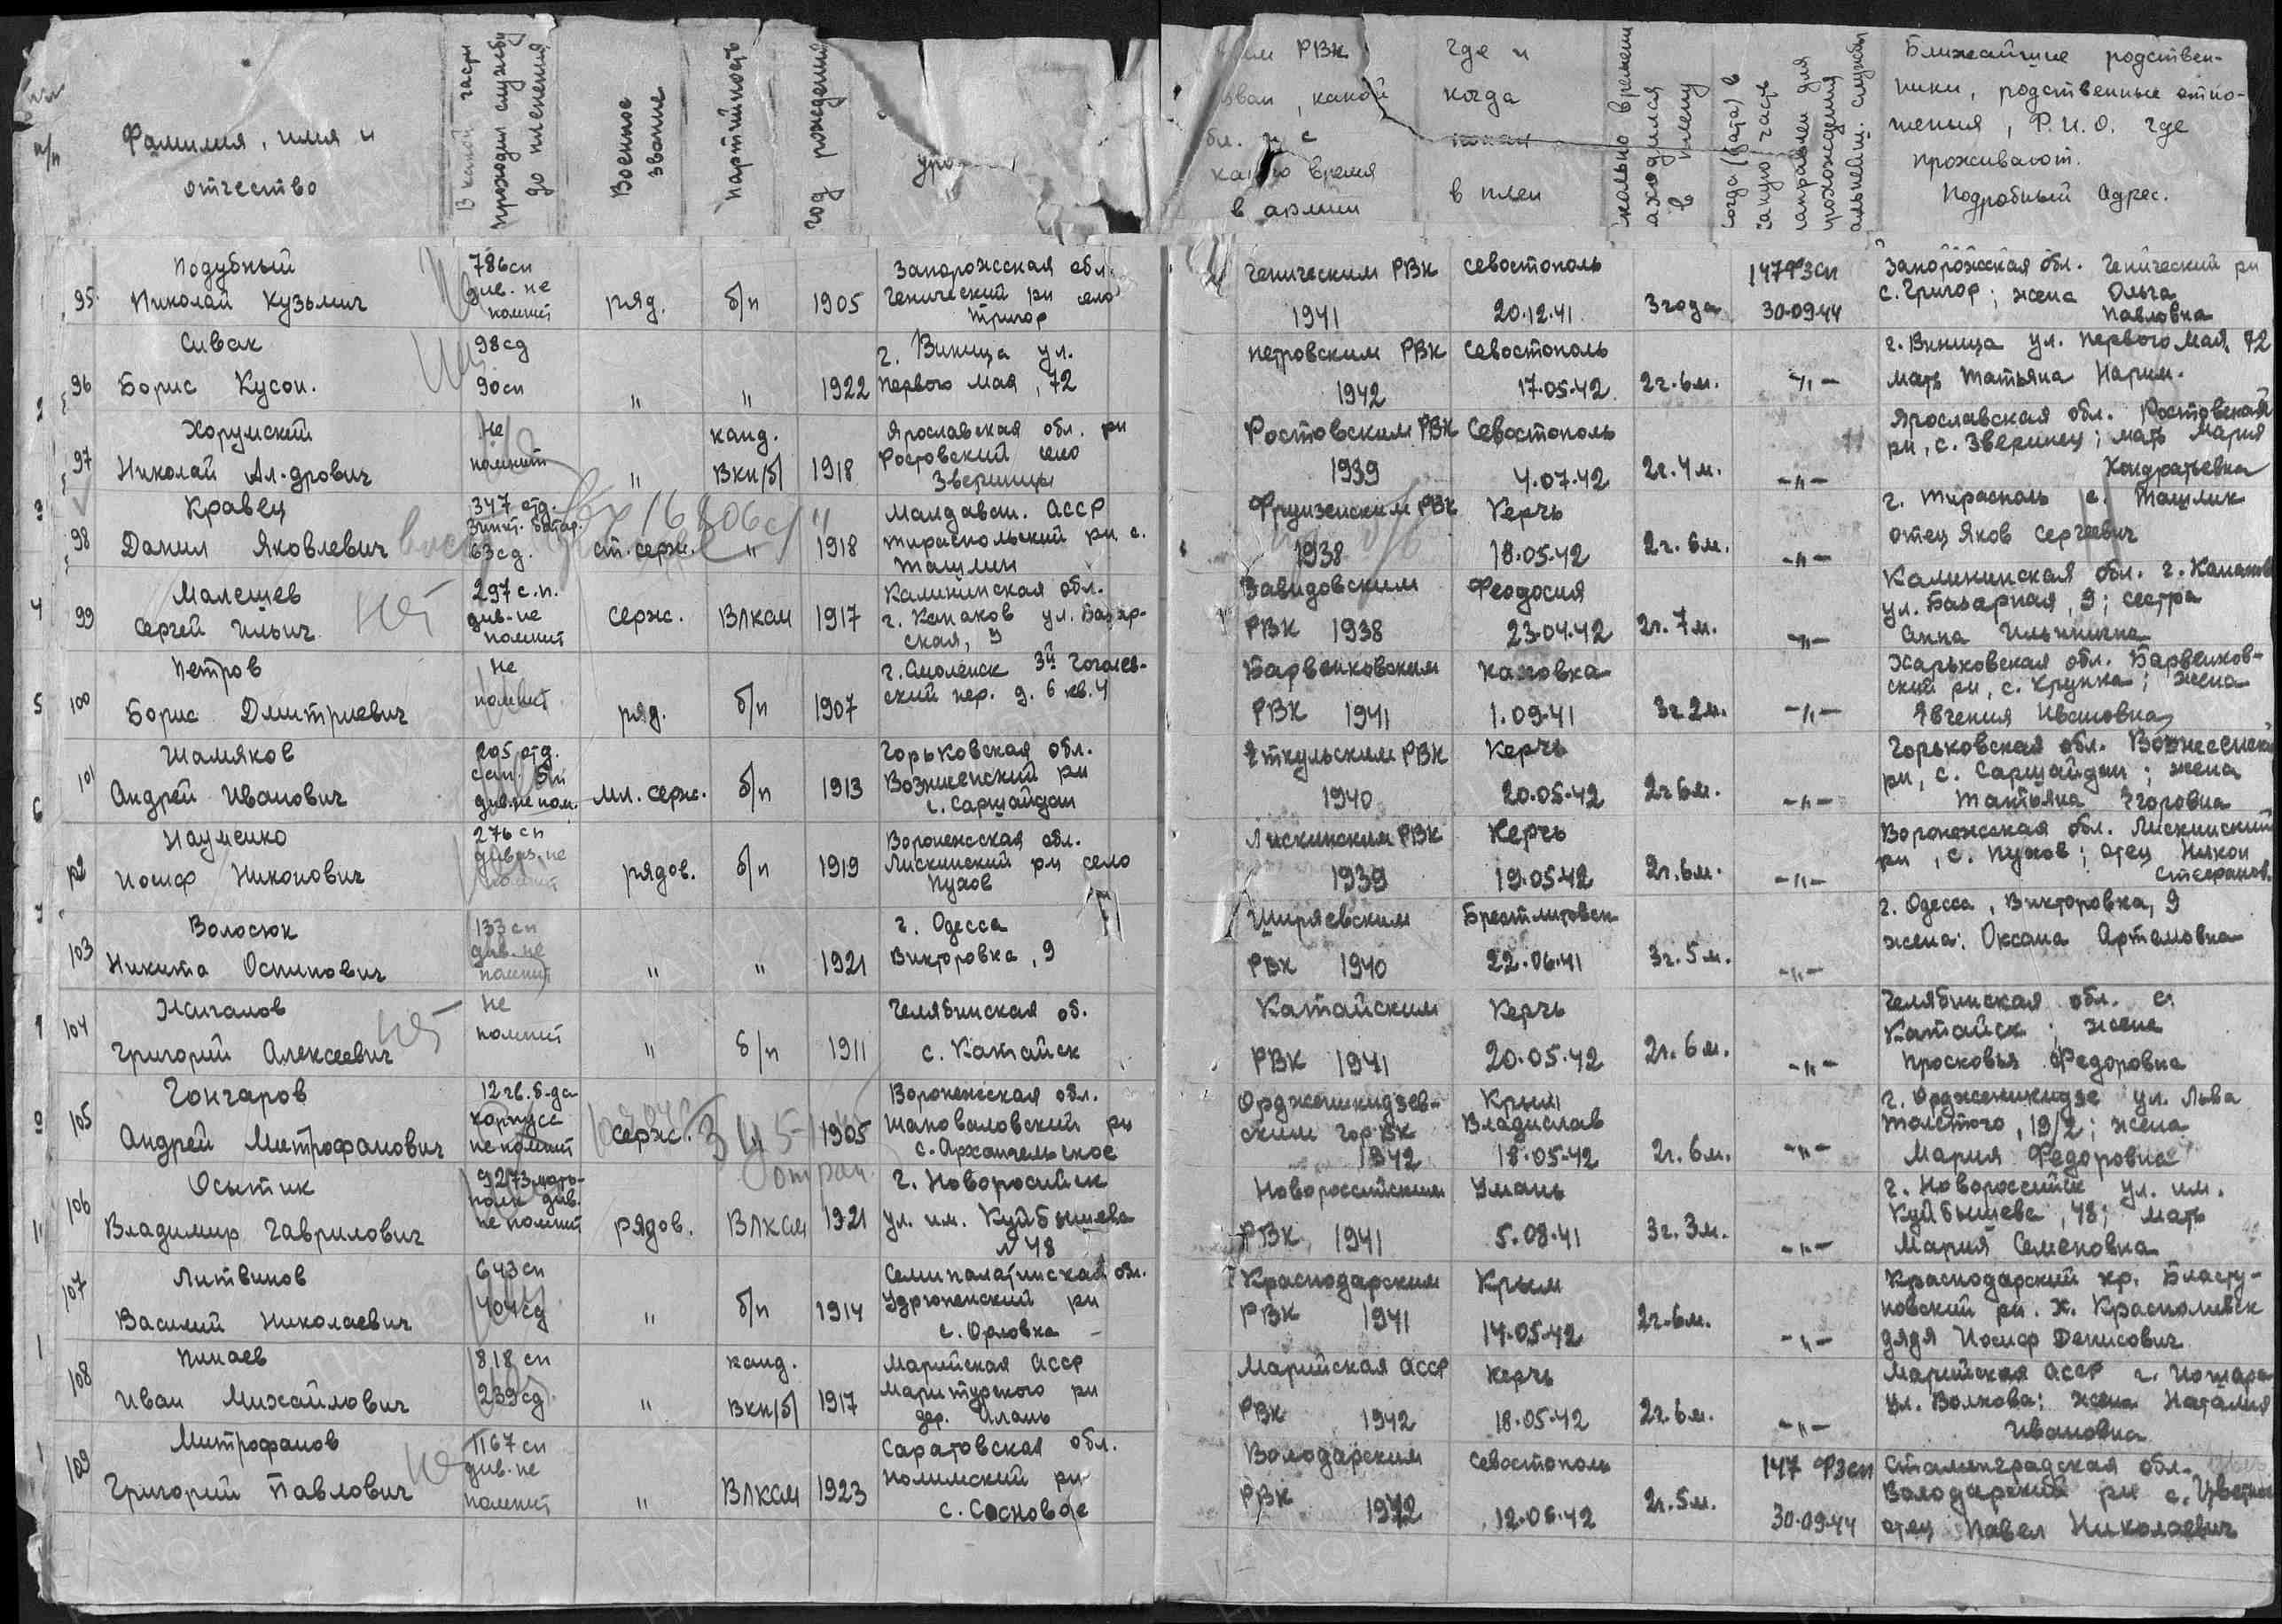 п/п
Фамилия, имя и
отчество
В какой части
проходил службу
до пленения
Военное
звание
партийность
год рождения
РВК
какой
время
в армии
где и
когда
в плен
Ближайшие родствен-
ники, родственные отно-
шения, Ф.И.О. где
проживают.
Подробный адрес.
95
Подубный
Николай Кузьмич
786сп
див. не
помнит
ряд.
б/п
1905
Запорожсская обл.
Генический рн село
Григор
Геническим РВК
1941
Севостополь
20.12.41
3 года
147 ФЗСП
30.09.44
Запорожсская обл. Генический рн
с. Григор; жена Ольга
Павловна
96
Сивак
Борис Кусон.
98сд
90сп
"
"
1922
г. Виница ул.
Первого мая, 72
Петровским РВК
1942
Севостополь
17.05.42
2г. 6м.
-"-
г. Виница ул. Первого Мая, 72
мать Татьяна Нарим.
97
Хорумский
Николай Ал-дрович
Не
помнит
"
канд.
ВКП/б/
1918
Ярославская обл. рн
Ростовский село
Зверинцы
Ростовским РВК
1939
Севостополь
4.07.42
2г. 4м.
-"-
Ярославская обл. Ростовский
рн, с. Зверинец; мать Мария
Кондратьевна
98
Кравец
Данил Яковлевич
347 отд.
зинит. батар.
63сд.
ст. серж.
"
1918
Молдавск. АССР
Тираспольский рн с.
Ташлик
Фрунзенским РВК
1938
Керчь
18.05.42
2г. 6м.
-"-
г. Тирасполь с. Ташлик
отец Яков Сергеевич
99
Малешев
Сергей Ильич
нет
297 с.п.
див. не
помнит
серж.
ВЛКСМ
1917
Калининская обл.
г. Конаков ул. Базар-
ская, 9
Завидовским
РВК 1938
Феодосия
23.04.42
2г. 7м.
-"-
Калининская обл. г. Конаков
ул. Базарная, 9; сестра
Анна Ильинична
100
Петров
Борис Дмитриевич
Не
помнит
ряд.
б/п
1907
г. Смоленск 3й Гоголев-
ский пер. д. 6 кв. 4
Барвенковским
РВК 1941
Каховка
1.09.41
3г. 2м.
-"-
Харьковская обл. Барвенков-
ский рн, с. Крупка; жена
Явгения Ивановна
101
Шамяков
Андрей Иванович
205 отд.
сап. бн
див. не пом.
мл. серж.
б/п
1913
Горьковская обл.
Вознисенский рн
с. Саршайдан
Еткульским РВК
1940
Керчь
20.05.42
2г. 6м.
-"-
Горьковская обл. Вознесенский
рн, с. Саршайдан; жена
Татьяна Егоровна
102
Науменко
Иосиф Никонович
276 сп
дивиз. не
помнит
рядов.
б/п
1919
Воронежсская обл.
Лискинский рн село
Пухов
Лискинским РВК
1939
Керчь
19.05.42
2г. 6м.
-"-
Воронежсская обл. Лискинский
рн, с. Пухов; отец Никон
Стефанов.
103
Волосюк
Никита Оспипович
133 сп
див. не
помнит
"
"
1921
г. Одесса
Викторовка, 9
Ширяевским
РВК 1940
Брестлитовск
22.06.41
3г. 5м.
-"-
г. Одесса, Викторовка, 9
жена: Оксана Артемовна
104
Жигалов
Григорий Алексеевич
нет
Не
помнит
"
б/п
1911
Челябинская об.
с. Катайск
Катайским
РВК 1941
Керчь
20.05.42
2г. 6м.
-"-
Челябинская обл. с.
Катайск; жена
Просковья Федоровна
105
Гончаров
Андрей Митрофанович
12 гв. б-да
корпуса
не помнит
серж.
"
1905
Воронежсская обл.
Шаповаловский рн
с. Архангельское
Орджоникидзев-
ским горВК
1942
Крым
Владислав
18.05.42
2г. 6м.
-"-
г. Орджоникидзе ул. Льва
Толстого, 19/2; жена
Мария Федоровна
106
Осытик
Владимир Гаврилович
9273 мото-
полк див.
не помнит
рядов.
ВЛКСМ
1921
г. Новоросийск
ул. им. Куйбышева
N 48
Новороссийским
РВК 1941
Умань
5.08.41
3г. 3м.
-"-
г. Новороссийск ул. им.
Куйбышева, 48; мать
Мария Семеновна
107
Литвинов
Василий Николаевич
643 сп
404 сд
"
б/п
1914
Семипалатинская обл.
Удрюпенский рн
с. Орловка
Краснодарским
РВК 1941
Крым
14.05.42
2г. 6м.
-"-
Краснодарский кр. Пласту-
новский рн. х. Красполивск
дядя Иосиф Денисович
108
Пинаев
Иван Михайлович
818 сп
239сд
"
канд.
ВКП/б/
1917
Марийская АССР
Маритурского рн
дер. Илань
Марийская АССР
РВК 1942
Керчь
18.05.42
2г. 6м.
-"-
Марийская АССР г. Иошара
ул. Волкова; жена Наталия
Ивановна
109
Митрофанов
Григорий Павлович
1167 сп
див. не
помнит
"
ВЛКСМ
1923
Саратовская обл.
рн
с. Сосновое
Володарским
РВК 1942
Севостополь
12.06.42
2г. 5м.
147 ФЗСП
30.09.44
Сталинградская обл.
Володарский рн с. Цветное
отец Павел Николаевич